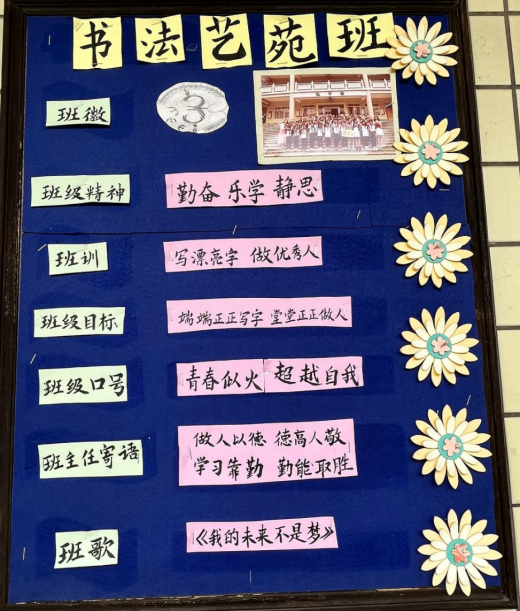 书法艺苑班
班徽
班级精神 勤奋 乐学 静思
班训 写漂亮字 做优秀人
班级目标 端端正正写字 堂堂正正做人
班级口号 青春似火 超越自我
班主任寄语 做人以德 德高人敬
学习靠勤 勤能取胜
班歌 《我的未来不是梦》